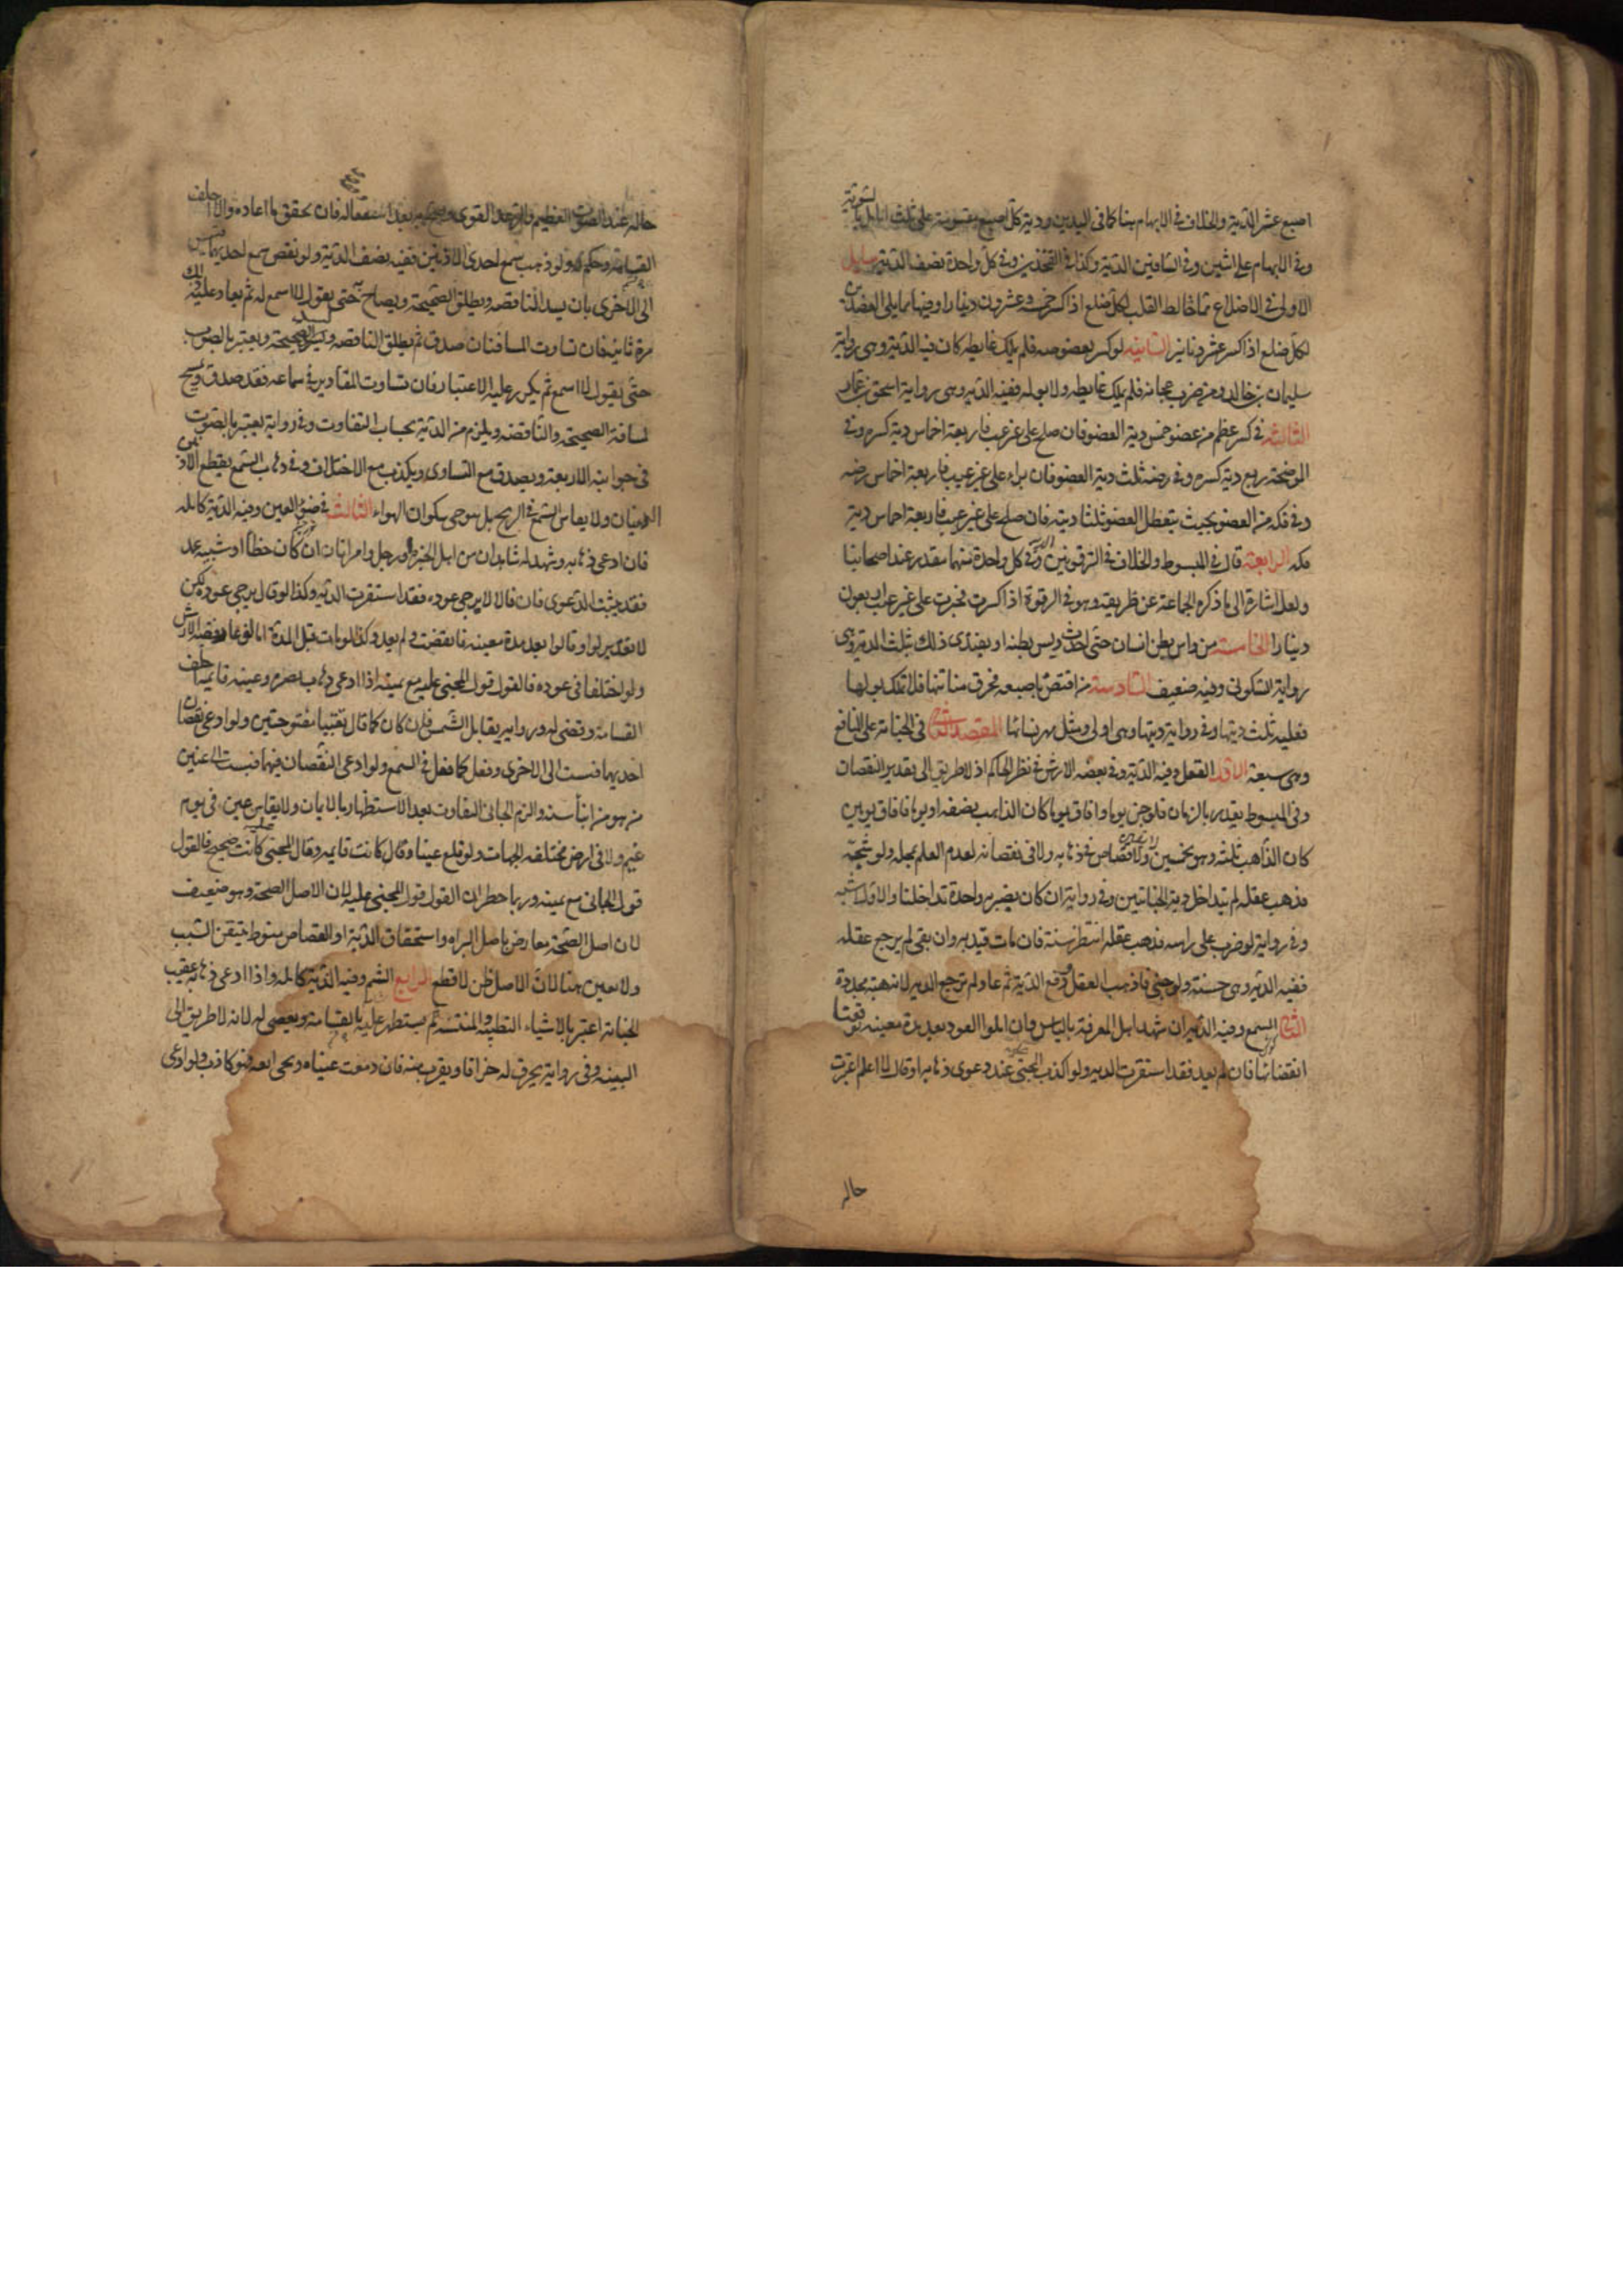 اصبع عشر الدية والخلاف في الابهام هنا كما في اليدين ودية كل اصبع مقسومة على ثلث انامل بالسوية
وفي الابهام على اثنين وفي الساقين الدية وكذا في الفخذين وفي كل واحدة نصف الدية مسايل
الاولى في الاضلاع مما خالط القلب لكل ضلع اذا كسر خمسة وعشرون دينارا وفيها مما يلي العضدين
لكل ضلع اذا كسر عشرة دنانير الثانيه لو كسر بعصوصه فلم يملك غايطه كان فيه الدية وهي رواية
سليمان بن خالد ومن ضرب عجانه فلم يملك غايطه ولا بوله ففيه الدية وهي رواية اسحق بن عمار
الثالثه في كسر عظم من عضو خمس دية العضو فان صلح على غير عيب فاربعة اخماس دية كسره وفي
الموضحة ربع دية كسره وفي رضه ثلث دية العضو فان براء على غير عيب فاربعة اخماس رضه
وفي فكه من العضو بحيث يتعطل العضو ثلثا ديته فان صلح على غير عيب فاربعة اخماس دية
فكه الرابعة قال في المبسوط والخلاف في الترقوتين وفي كل واحدة منهما مقدر عند اصحابنا
ولعله اشارة الى ما ذكره الجماعة عن ظريف وهو في الترقوة اذا كسرت فجبرت على غير عيب اربعون
دينارا الخامسة من داس بطن انسان حتى احدث ديس بطنه او يفتدى ذلك بثلث الدية وهي
رواية السكوني وفيه ضعف السادسة من افتض باصبعه فخرق مثانتها فلا تملك بولها
فعليه ثلث ديتها وفي رواية ديتها وهي اولى ومثل مهر نسائها المقصد الثاني في الجناية على المنافع
وهي سبعة الاول العقل وفيه الدية وفي بعضه الارش في نظر الحاكم اذ لا طريق الى تقدير النقصان
وفي المبسوط يقدر بالزمان فلو جن يوما وافاق يوما كان الذاهب نصفه او يوما فافاق يومين
كان الذاهب ثلثه وهو تخمين ولا قصاص في ذهابه ولا في نقصانه لعدم العلم بمحله ولو شجه
فذهب عقله لم يتداخل دية الجنايتين وفي رواية ان كان بضربة واحدة تداخلتا والاول اشبه
وفي رواية لو ضرب على راسه فذهب عقله انتظر سنة فان مات قيد به وان بقي لم يرجع عقله
ففيه الدية وهي حسنة ولو جنى فاذهب العقل ودفع الدية ثم عاد لم ترجع الدية لانه هبة مجددة
الثاني السمع وفيه الدية ان شهد اهل المعرفة بالياس وان املوا العود بعد مدة معينة توقعنا
انقضائها فان لم يعد فقد استقرت الدية ولو اكذب الجاني عند دعوى ذهابه او قال لا اعلم اعتبرت
حاله
حاله عند الصوت العظيم والرعد القوي وصيح به بعد استغفاله فان تحقق ما ادعاه والا احلف
القسامة وحكم له ولو ذهب سمع احدى الاذنين ففيه نصف الدية ولو نقص سمع احديهما قيس
الى الاخرى بان يسد الناقصه ويطلق الصحيحة ويصاح به حتى يقول لا اسمع ثم يعاد عليه ذلك
مرة ثانية فان تساوت المسافتان صدق ثم يطلق الناقصه ويسد الصحيحة ويعتبر بالصوت
حتى يقول لا اسمع ثم يكرر عليه الاعتبار فان تساوت المقادير في سماعه فقد صدق ويمسح
مسافة الصحيحة والناقصه ويلزم من الدية بحساب التفاوت وفي رواية يعتبر بالصوت
في جوانبه الاربعة ويصدق مع التساوي ويكذب مع الاختلاف وفي ذهاب السمع بقطع الاذنين
الديتان ولا يقاس السمع في الريح بل يتوخى سكون الهواء الثالث في ضوء العين وفيه الدية كامله
فان ادعى ذهابه وشهد له شاهدان من اهل الخبرة او رجل وامراتان ان كان خطأ او شبيه عمد
فقد ثبت الدعوى فان قالا لا يرجى عوده فقد استقرت الدية وكذا لو قال يرجى عوده لكن
لا تقدير له او قالوا بعد مدة معينه فانقضت ولم يعد وكذا لو مات قبل المدة اما لو عاد ففيه الارش
ولو اختلفا في عوده فالقول قول المجني عليه مع يمينه اذا ادعى ذهاب بصره وعينه قايمة احلف
القسامة وقضى له وفي رواية يقابل بالشمس فان كان كما قال بقيتا مفتوحتين ولو ادعى نقصان
احديهما قيست الى الاخرى وفعل كما فعل في السمع ولو ادعى النقصان فيهما قيست الى عينين
من هو من ابناء سنه والزم الجاني التفاوت بعد الاستظهار بالايمان ولا يقاس عين في يوم
غيم ولا في ارض مختلفه الجهات ولو قلع عينا وقال كانت قايمه وقال المجني عليه كانت صحيحة فالقول
قول الجاني مع يمينه وربما خطر ان القول قول المجني عليه لان الاصل الصحة وهو ضعيف
لان اصل الصحة معارض باصل البراه واستحقاق الدية او القصاص منوط بتيقن السبب
ولا يقين هنا لان الاصل ظن لا قطع الرابع الشم وفيه الدية كامله واذا ادعى ذهابه عقيب
الجناية اعتبر بالاشياء الطيبة والمنتنة ثم يستظهر عليه بالقسامة ويقضى له لانه لا طريق الى
البينة وفي رواية يحرق له حراق ويقرب منه فان دمعت عيناه ونحى انفه فهو كاذب ولو ادعى